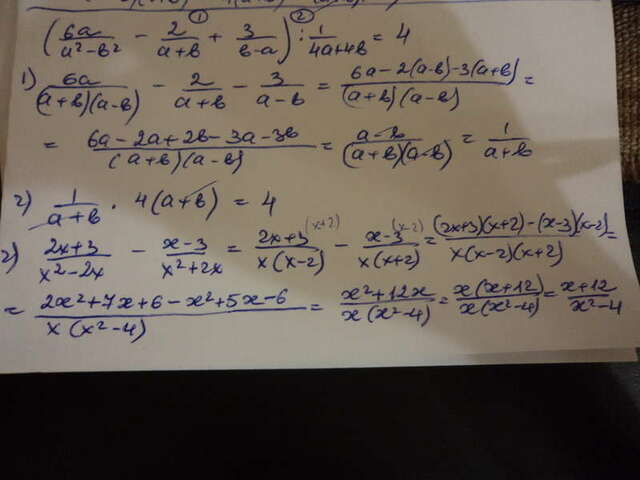 (6a/(a²-в²) - 2/(a+в) + 3/(в-a)) : 1/(4a+4в) = 4
① ②
1) 6a/((a+в)(a-в)) - 2/(a+в) - 3/(a-в) = (6a-2(a-в)-3(a+в))/((a+в)(a-в)) =
= (6a-2a+2в-3a-3в)/((a+в)(a-в)) = (a-в)/((a+в)(a-в)) = 1/(a+в)
2) 1/(a+в) · 4(a+в) = 4
2) (2x+3)/(x²-2x) - (x-3)/(x²+2x) = (2x+3)/(x(x-2)) (x+2) - (x-3)/(x(x+2)) (x-2) = ((2x+3)(x+2)-(x-3)(x-2))/(x(x-2)(x+2)) =
= (2x²+7x+6-x²+5x-6)/(x(x²-4)) = (x²+12x)/(x(x²-4)) = x(x+12)/(x(x²-4)) = (x+12)/(x²-4)